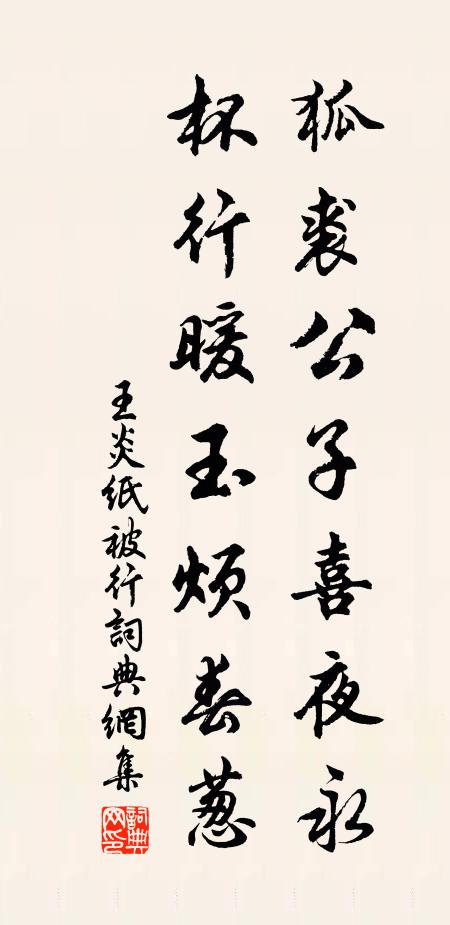 狐裘公子喜夜永
杯行暖玉煩春葱
王炎紙被行詞典網集
詞典網印